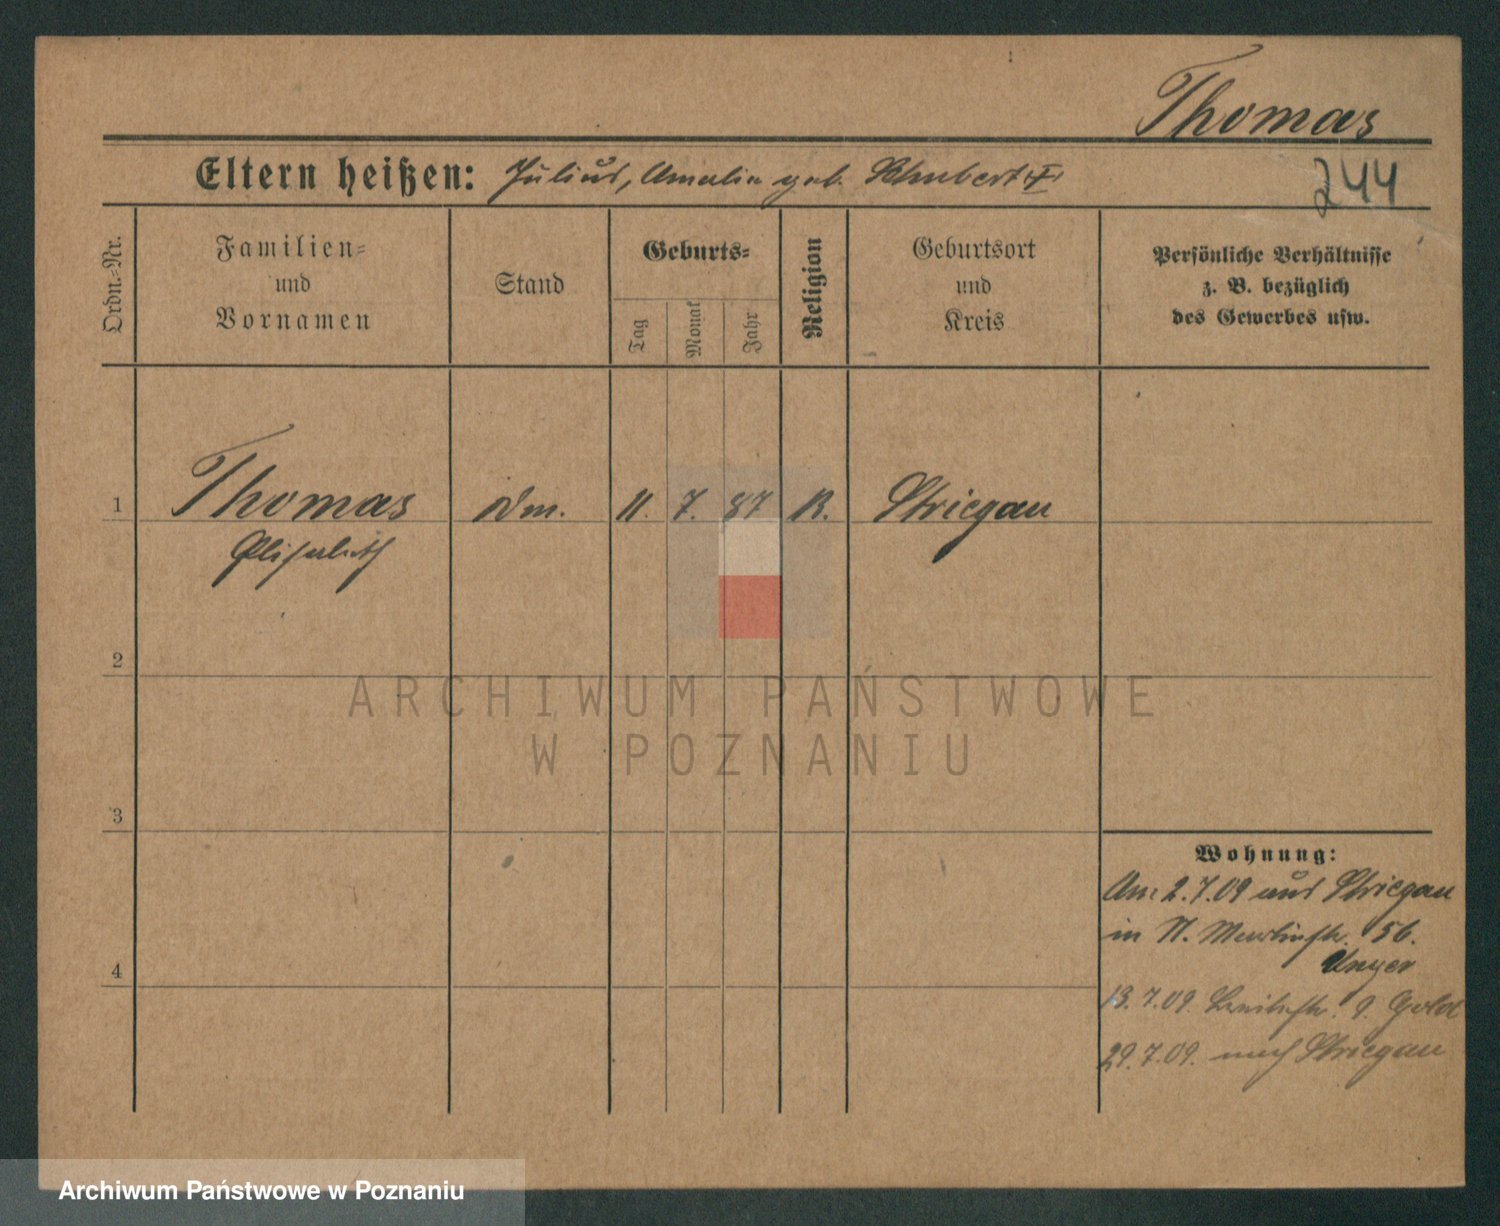 Thomas
Eltern heißen: Julius, Amalia geb. Schubert
244
Ordn.-Nr.
Familien-
und
Vornamen
Stand
Geburts-
Tag
Monat
Jahr
Religion
Geburtsort
und
Kreis
Persönliche Verhältnisse
z. B. bezüglich
des Gewerbes usw.
1
Thomas
Elisabeth
11. 7. 87
Striegau
2
ARCHIWUM PAŃSTWOWE
W POZNANIU
3
Wohnung:
Am 2.7.09 aus Striegau
in 56.
Unger
4
13.7.09. 9. Gold
29.7.09. nach Striegau
Archiwum Państwowe w Poznaniu